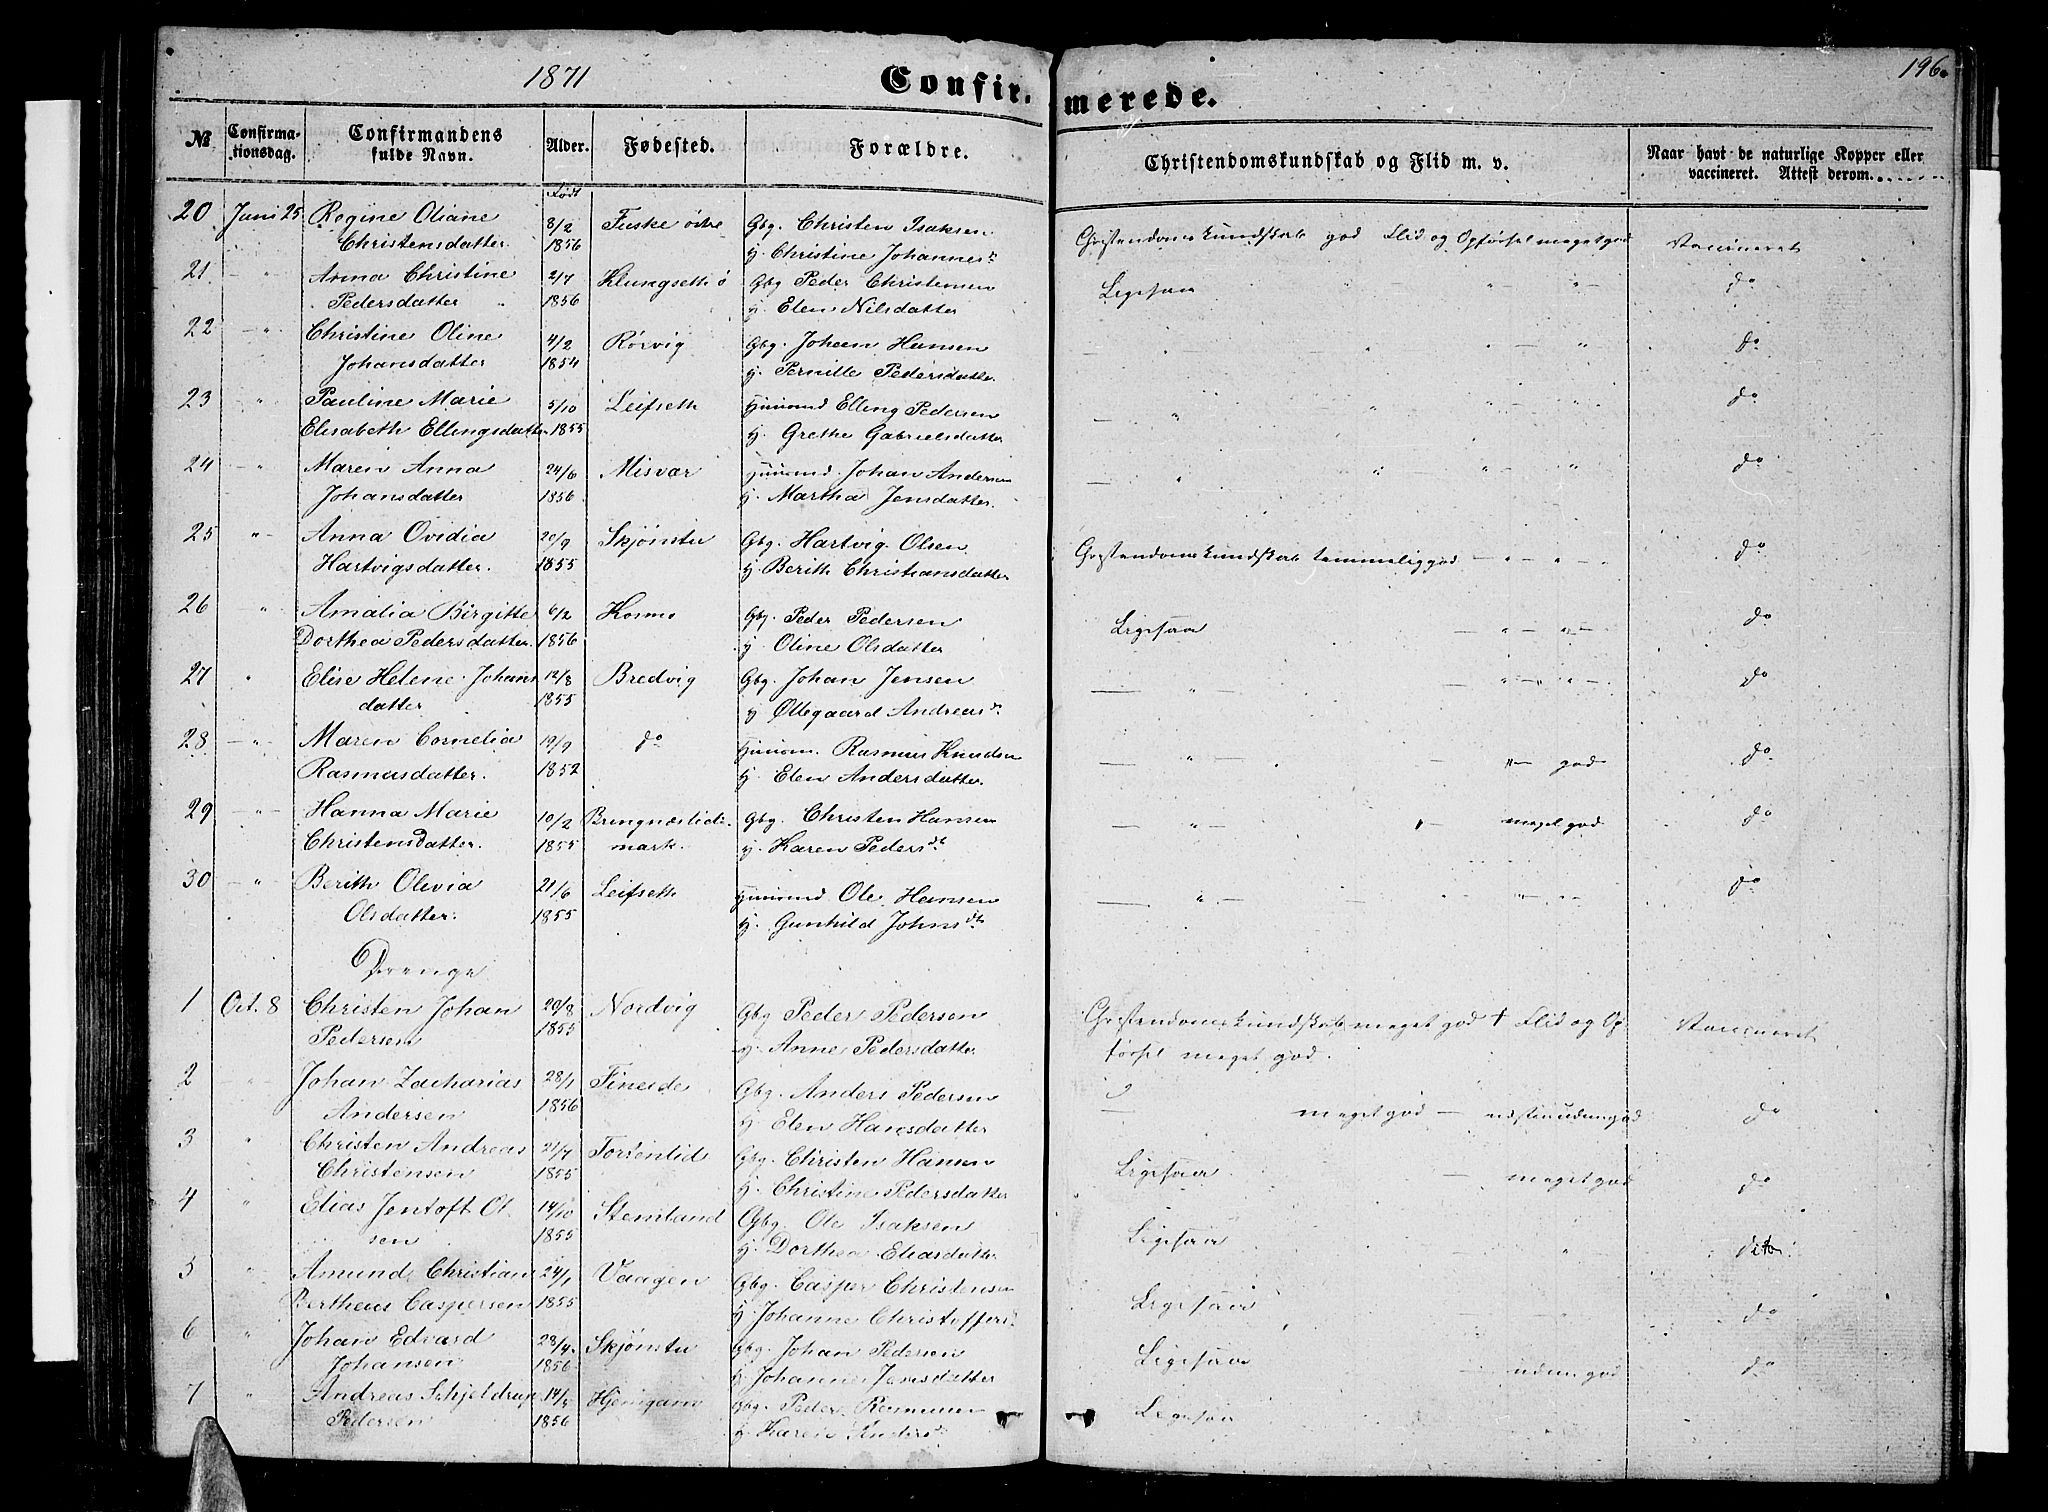 1871 Confirmerede. 196.
№ Confirmationsdag. Confirmandens fulde Navn. Alder. Fødested. Forældre. Christendomskundskab og Flid m. v. Naar havt de naturlige Kopper eller vaccineret. Attest derom.
Født
20 Juni 25 Regine Oliane 8/2 Fuske østre Gbg. Christen Isaksen
Christensdatter 1856 H. Christine Johannesd. Christendomskundskab god Flid og Opførsel meget god Vaccineret
21 - " Anna Christine 2/7 Klungset ø Gbg Peder Christensen Ligesaa " - " - " - do
Pedersdatter 1856 H. Elen Nilsdatter
22 - " - Christine Oline 4/2 Rørvig Gbg. Johan Hansen - " - " - " - " do
Johansdatter 1854 H. Pernille Pedersdatter
23 " Pauline Marie 5/10 Leifseth Huusmd Elling Pedersen - " " " - " - do
Elisabeth Ellingsdatter 1855 H. Grethe Gabrielsdatter
24 - " Maren Anna 24/6 Misvær Huusmd. Johan Andersen " " " - " - do
Johansdatter 1856 H. Martha Jensdatter.
25 " - Anna Ovidia 20/9 Skjønstu Gbg. Hartvig Olsen Christendomskundskab temmelig god - " - " - do
Hartvigsdatter. 1855 H. Berith Christiansdatter
26 " Amalia Birgitte 6/2 Kosmo Gbg. Peder Pedersen Ligesaa - " - " - do
Dorthea Pedersdatter 1856 H. Oline Olsdatter
27 " Elise Helene Johans 12/8 Bredvig Gbg. Johan Jensen - " - - " - " - do
datter 1855 H Ollegaard Andreasd.
28 - " - Maren Cornelia 19/9 do Huusm. Rasmus Knudsen
Rasmusdatter. 1852 H. Elen Andersdatter - " - - " - god do
29 - " - Hanna Marie 10/2 Bringnæslids- Gbg. Christen Hansen - " - - meget god do
Christensdatter. 1855 mark. H. Karen Pedersdt
30 - " Berith Olivia 21/6 Leifseth Huusmd Ole Hansen - " - - " - " - do
Olsdatter. 1855 H. Gunhild Johnsdt
Drenge
1 Oct. 8 Christen Johan 29/8 Nordvig Gbg Peder Pedersen Christendomskundskab meget god + Flid og Op- Vaccineret
Pedersen 1855 H. Anne Pedersdatter førsel meget god.
2 - " Johan Zacharias 28/1 Fineide Gbg. Anders Pedersen
Andersen 1856 H. Elen Hansdatter - meget god - god do
3 " Christen Andreas 21/7 Tortenlid Gbg. Christen Hansen Ligesaa - meget god do
Christensen 1855 H. Christine Pedersdatter
4 " Elias Jentoft Ol- 14/10 Stemland Gbg. Ole Isaksen Ligesaa " dito.
sen 1855 H. Dorthea Eliasdatter
5 " Amund Christian 24/1 Vaagen Gbg. Casper Christensen
Bertheus Caspersen 1855 H. Johanne Christoffersd Ligesaa " do
6 " Johan Edvard 28/4 Skjønstu Gbg. Johan Pedersen Ligesaa - god do
Johansen 1856 H. Johanne Jensdatter
7 " Andreas Schjeldrup 14/5 Hjemgam Gbg. Peder Rasmusen Ligesaa
Pedersen 1856 H. Karen Andersd